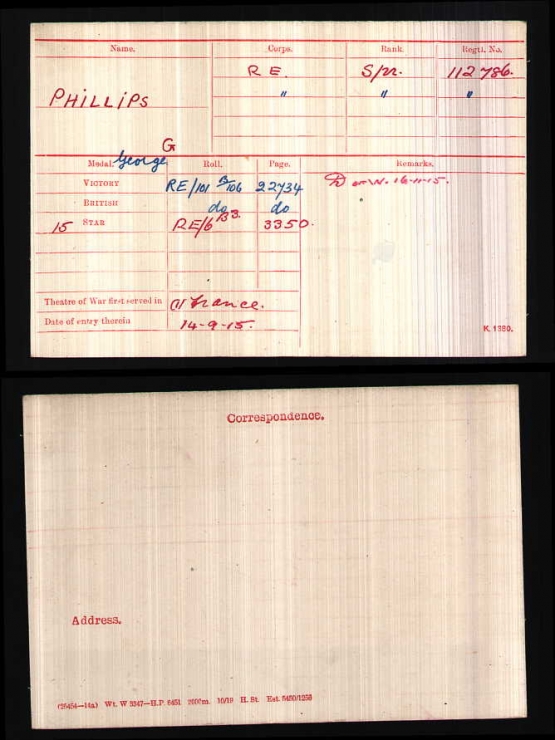 Name. Corps. Rank. Regtl. No.
R E. Spr. 112786.
PHILLIPS " " "
G
George
Medal. Roll. Page. Remarks.
VICTORY RE/101 B/106 22734 D of W. 16-11-15.
BRITISH do do
15 STAR RE/6 B3. 3350.
Theatre of War first served in (1) France.
Date of entry therein 14-9-15.
K. 1380.
Correspondence.
Address.
Wt. W 5347—H.P. 8451 2000m. 10/19 H. St.